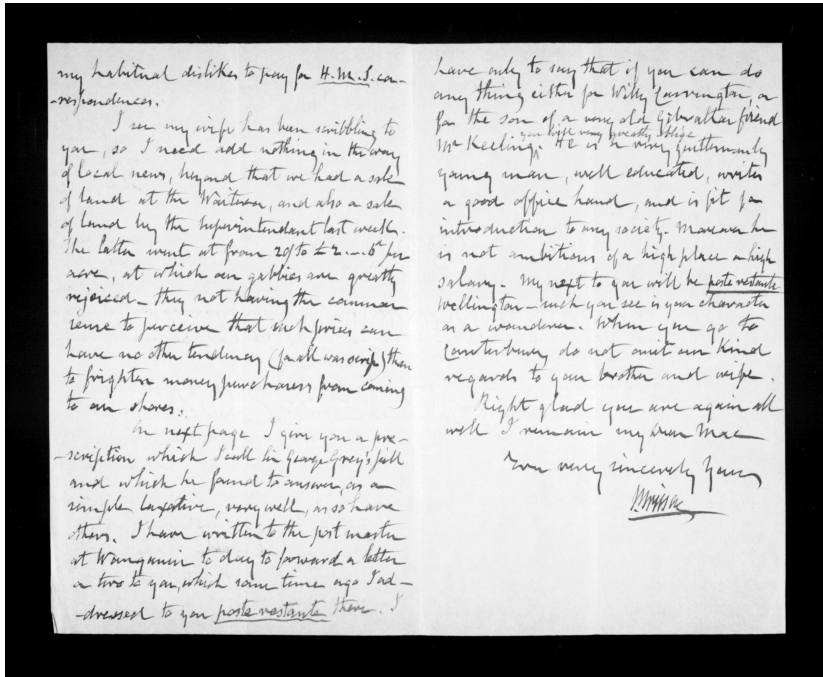 my habitual dislikes to pay for H.M.S. cor-
-respondences.
I see my wife has been scribbling to
you, so I need add nothing in the way
of local news, beyond that we had a sale
of land at the Waitera, and also a sale
of land by the Superintendant last week.
The latter went at from 20/ to £2.–.– per
acre, at which our gabbies are greatly
rejoiced – they not having the common
sense to perceive that such prices can
have no other tendency (for all was scrip) than
to frighten money purchasers from coming
to our shores.
On next page I give you a pre-
-scription which I call Sir George Grey's pill
and which he found to answer, as a
simple laxative, very well, as so have
others. I have written to the post master
at Wanganui to day to forward a letter
or two to you, which some time ago I ad-
-dressed to you poste restante there. I
have only to say that if you can do
any thing either for Willy Carrington, or
for the son of a very old Gibraltar friend
you will very greatly oblige
Mr Keeling. He is a very gentlemanly
young man, well educated, writes
a good office hand, and is fit for
introduction to any society. Moreover he
is not ambitious of a high place or high
salary. My next to you will be poste restante
Wellington – such you see is your character
as a wanderer. When you go to
Canterbury do not omit our kind
regards to your brother and wife.
Right glad you are again all
well I remain my dear Mac
Ever very sincerely Yours